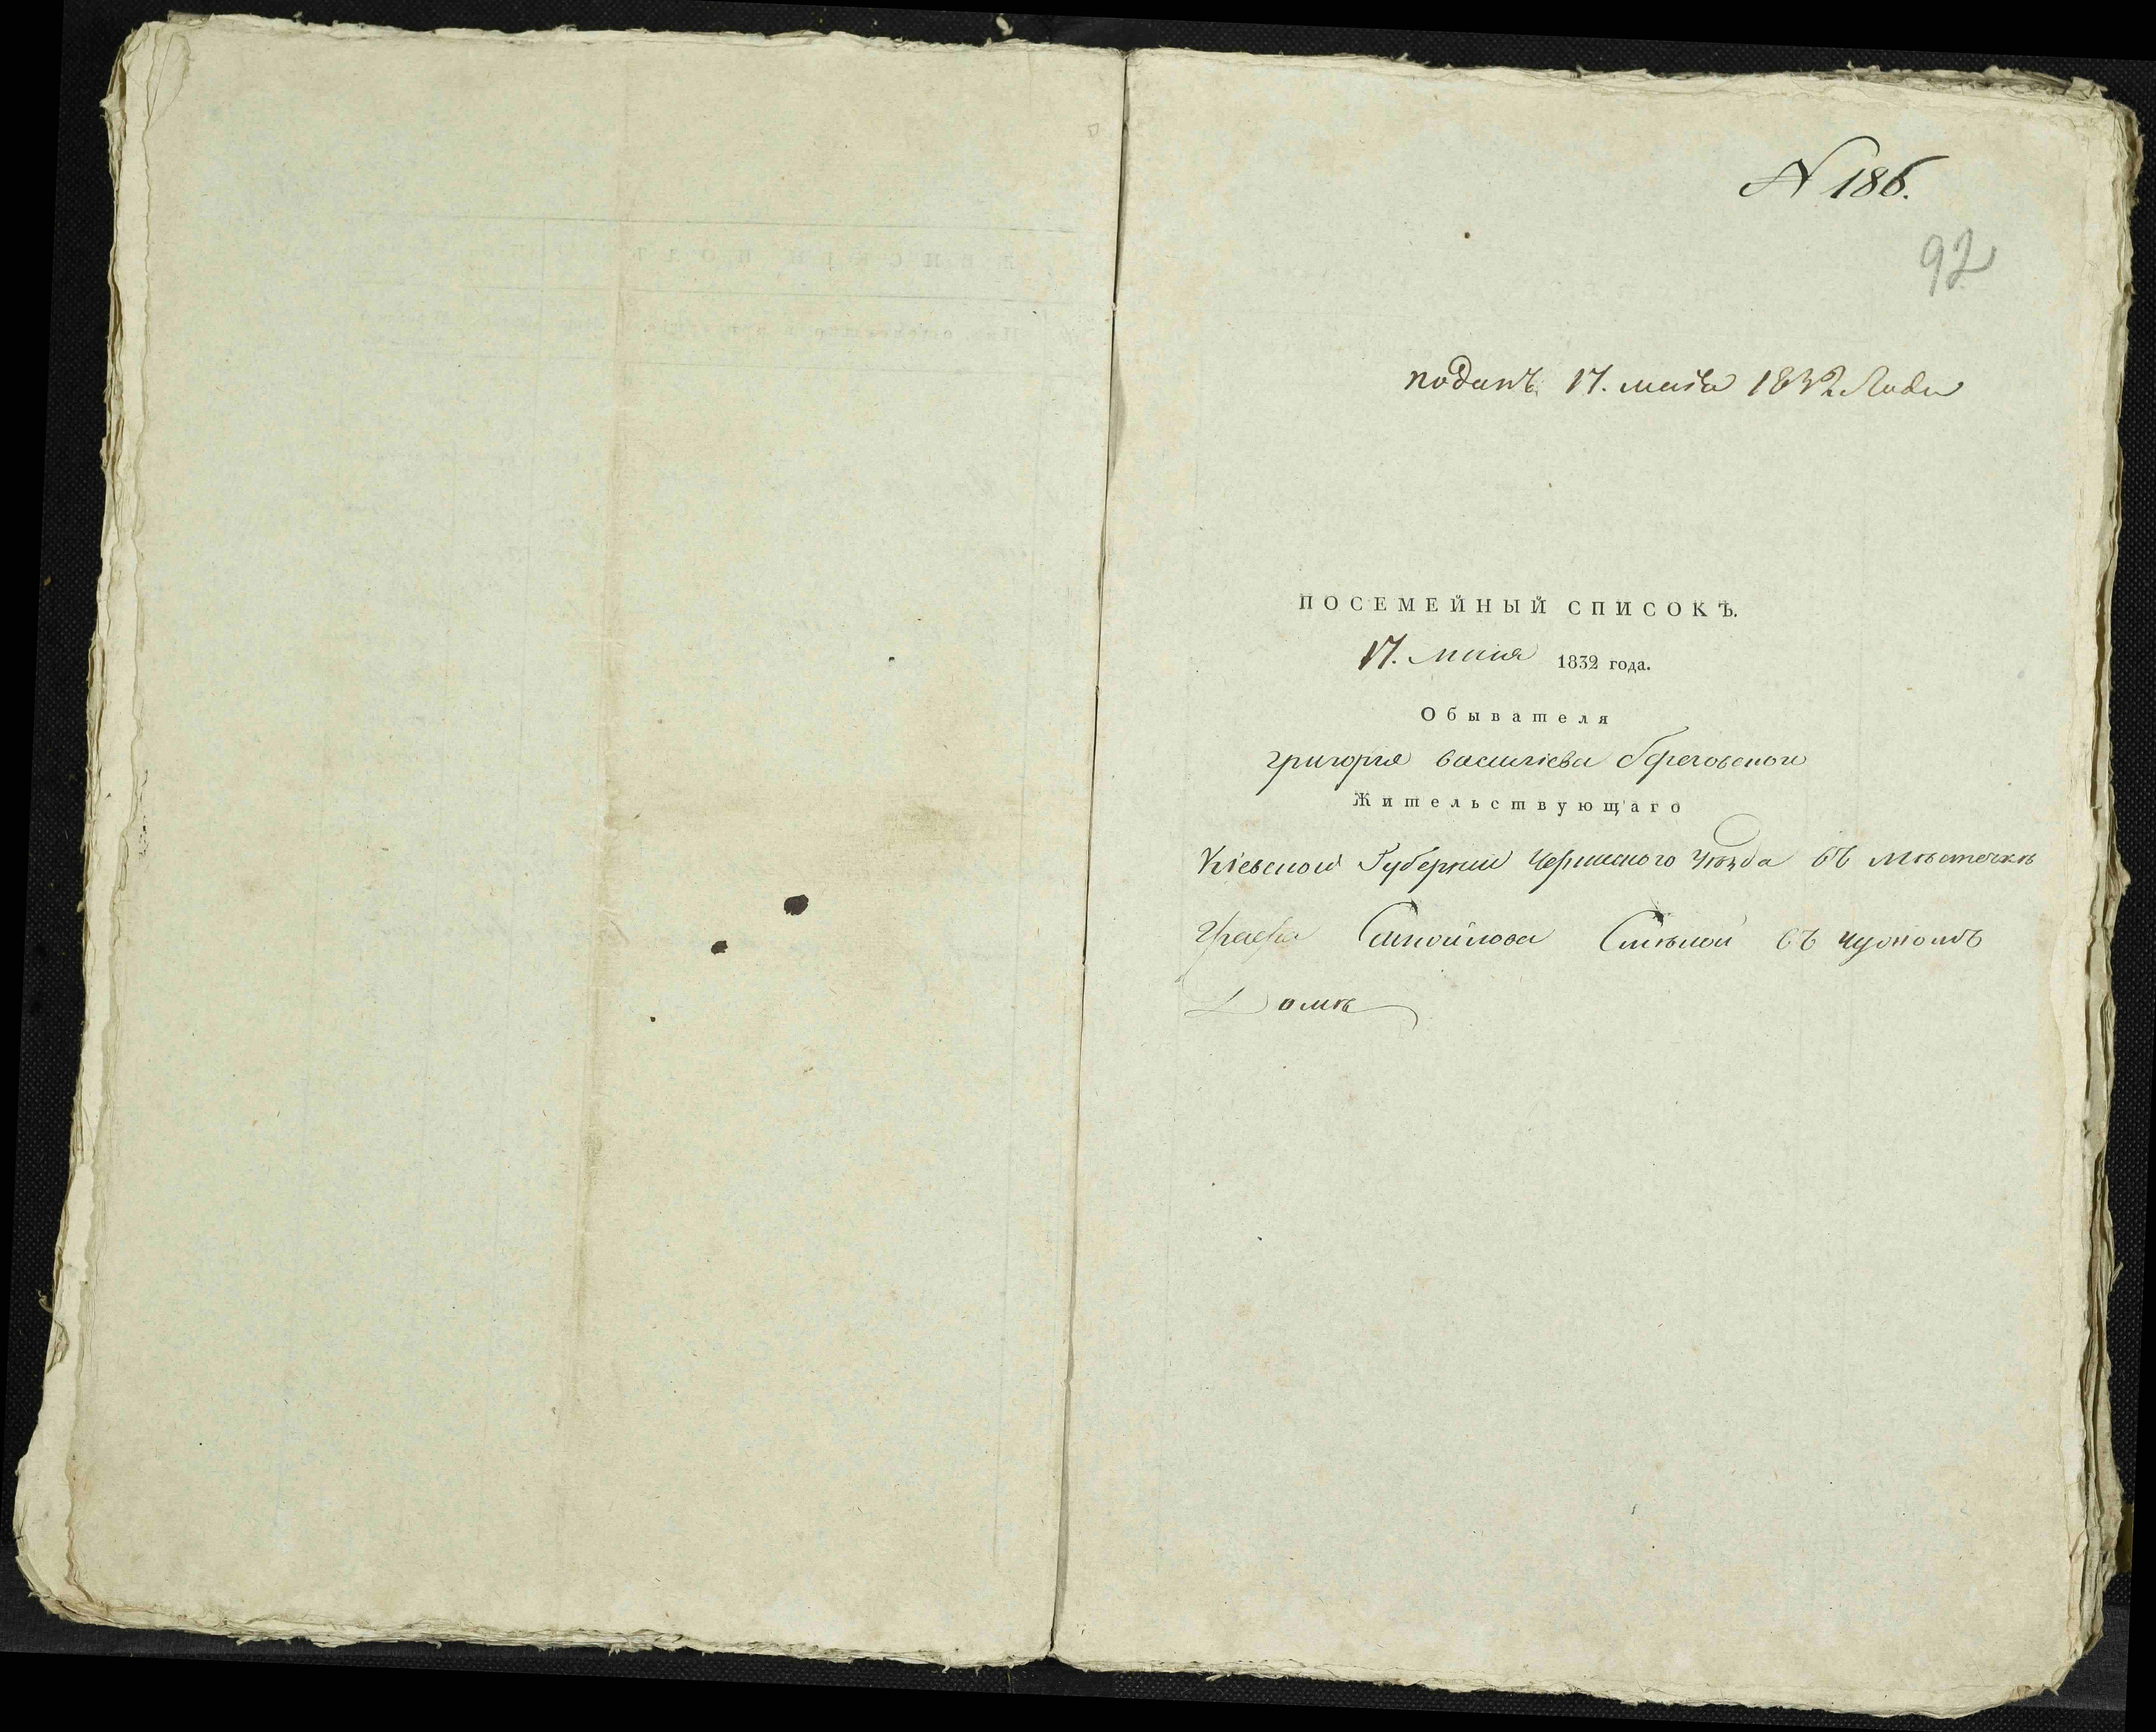 N 186.
92
поданъ 17. маія 1832 Года
ПОСЕМЕЙНЫЙ СПИСОКЪ.
17. маия 1832 года.
Обывателя
григорія василіева береговскои
Жительствующаго
Кіевской Губерніи Черкаского уѣзда въ мѣстечкѣ
Графа Самойлова Смѣлой въ чужомъ
Домѣ